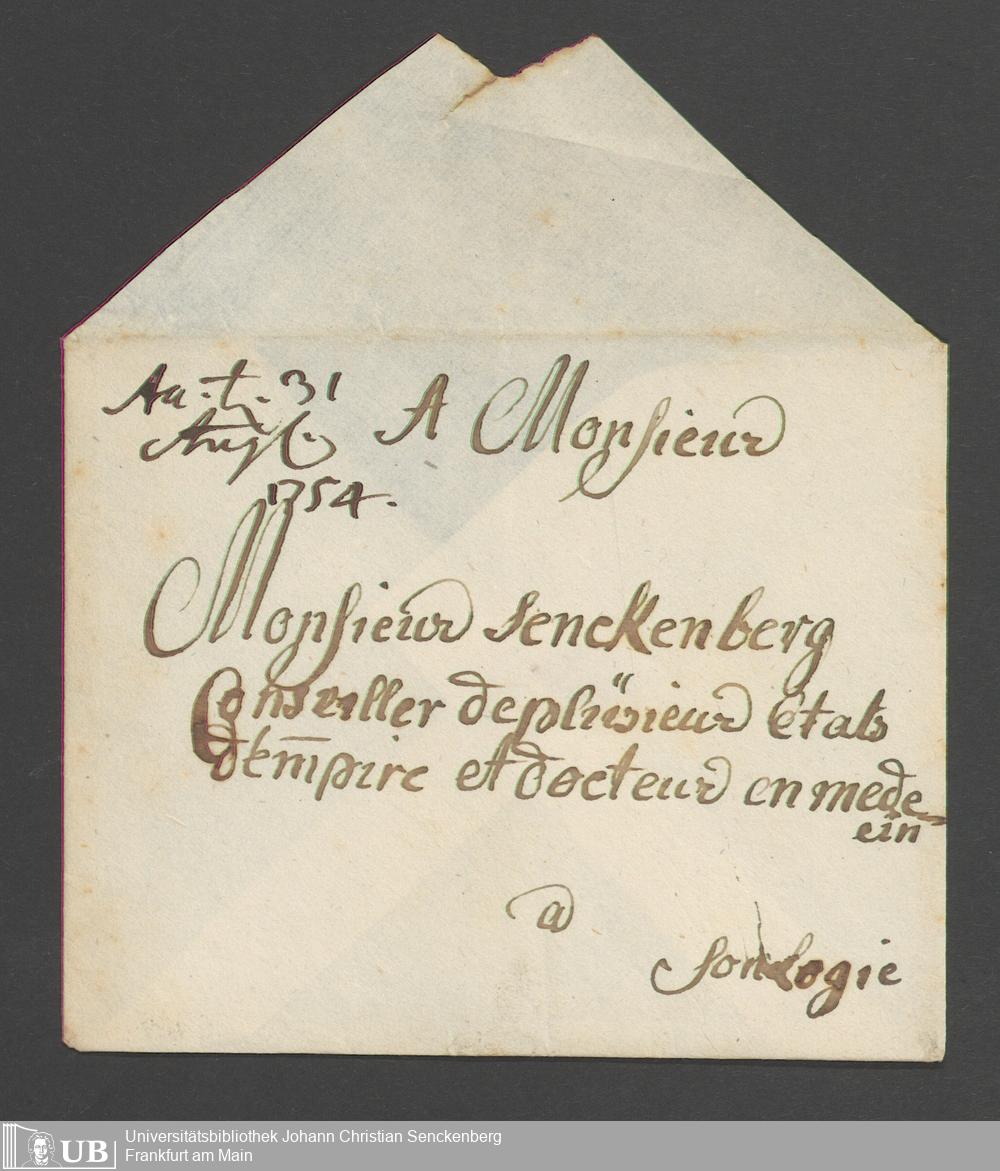 31
1754.
A Monsieur
Monsieur Senckenberg
Conseiller de plüsieur états
d'em̅pire et docteur en mede-
cin
a
Son Logie
UB
Universitätsbibliothek Johann Christian Senckenberg
Frankfurt am Main